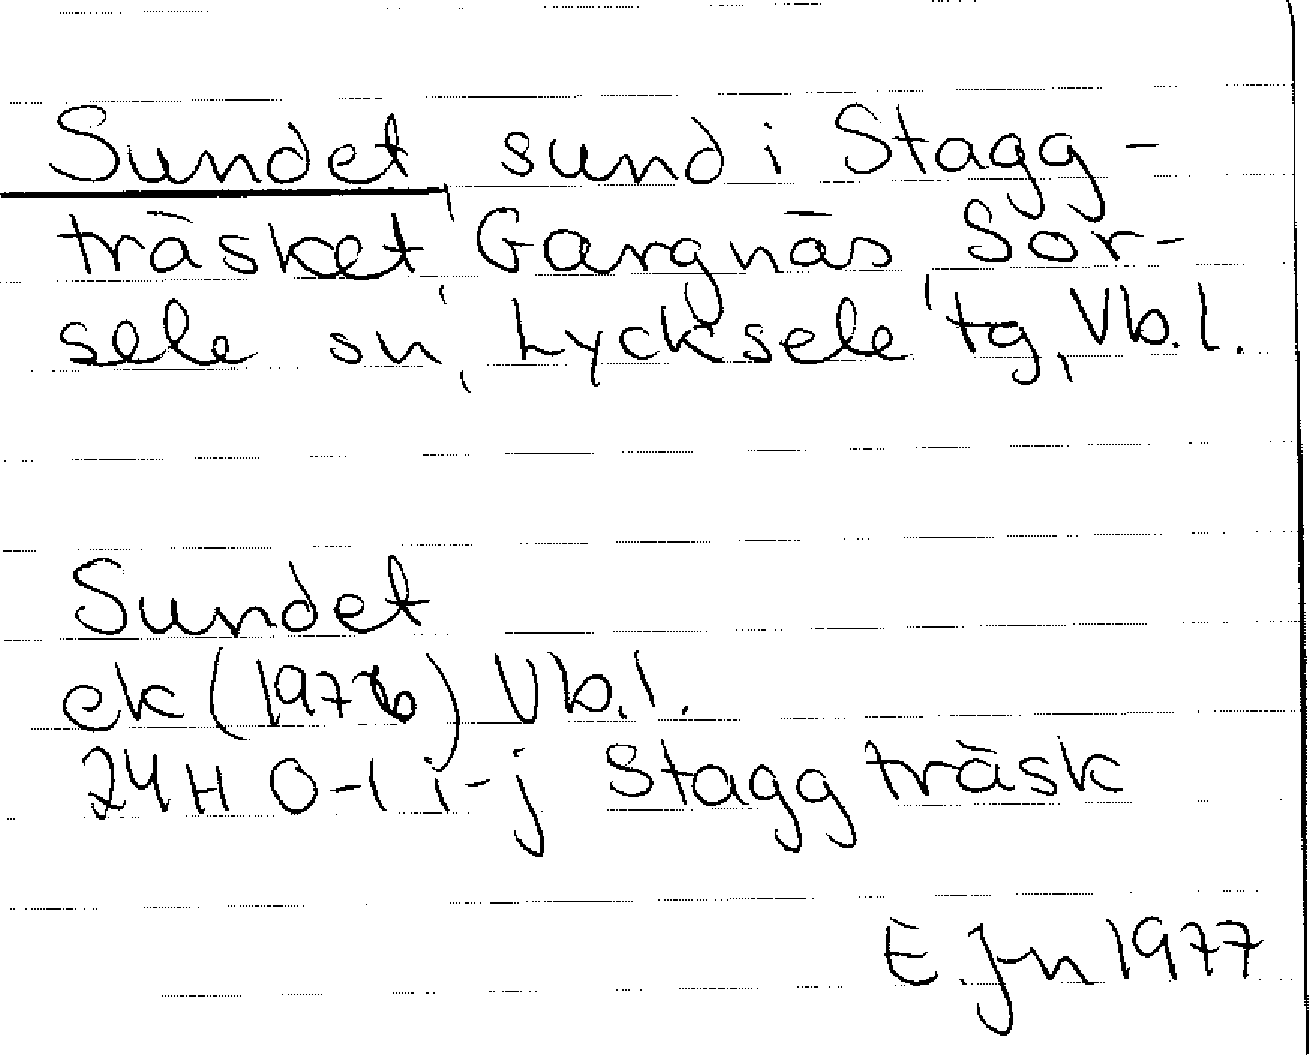 Sundet sund i Stagg-
träsket, Gargnäs Sor-
sele sn, Lycksele tg, Vb.l.
Sundet
ek (1976) Vb.l.
24H 0-1 i-j Staggträsk
E. Jn 1977